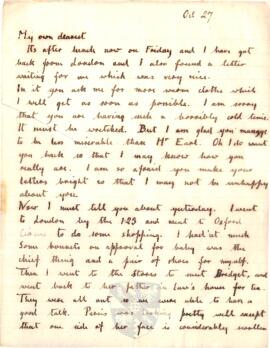 Oct 27
My own dearest
Its after lunch now on Friday and I have got
back from London and I also found a letter
waiting for me which was very nice.
In it you ask me for more warm clothes which
I will get as soon as possible. I am sorry
that you are having such a horribly cold time.
It must be wretched. But I am glad you manage
to be less miserable than Mr Earl. Oh I do want
you back so that I may know how you
really are. I am so afraid you make your
letters bright so that I may not be unhappy
about you.
Now I must tell you about yesterday. I went
to London by the 1.23 and went to Oxford
Circus to do some shopping. I had
some bonnets on approval for baby was the
chief thing and a pair of shoes for myself.
Then I went to the Stores to meet Bridget, and
went back to her father in law's house for tea.
They were all out so we were able to have a
good talk. was looking pretty well except
that one side of her face is considerably swollen